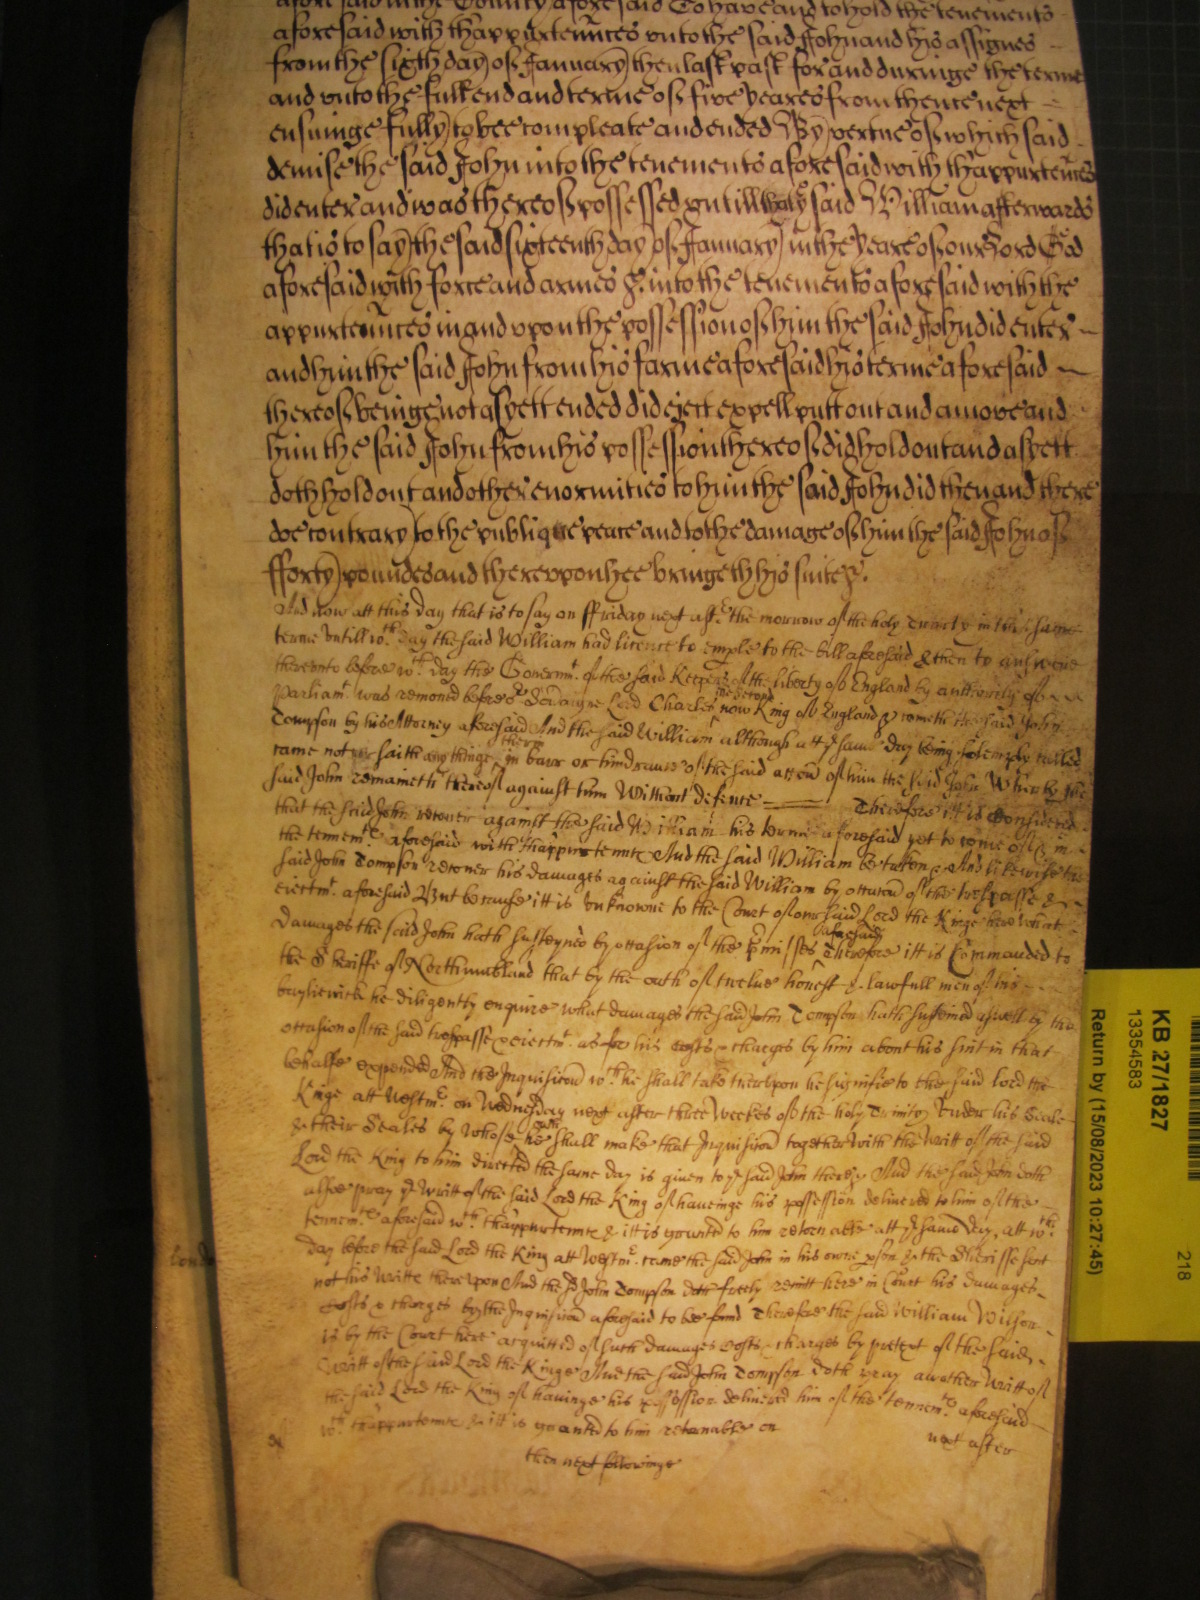 aforesaid in the County aforesaid To have and to hold the tenements
aforesaid with thappurtennces unto the said John and his assignes
from the sixth day of January then last past for and duringe the terme
and unto the full end and terme of five yeares from thence next
ensuinge fully to bee compleate and ended By vertue of which said
demise the said John into the tenements aforesaid with thappurtennces
did enter and was thereof possessed untill the said William afterwards
that is to say the said sixteenth day of January in the yeare of our Lord God
aforesaid with force and armes &c. into the tenements aforesaid with the
appurtennces in and upon the possession of him the said John did enter
and him the said John from his farme aforesaid his terme aforesaid
thereof beinge not as yett ended did eject expell putt out and amove and
him the said John from his possession thereof did hold out and as yett
doth hold out and other enormities to him the said John did then and there
doe contrary to the publique peace and to the damage of him the said John of
fforty poundes and thereupon hee bringeth his suite &c.
And now att this day that is to say on ffriday next after the morrow of the holy Trinity in this same
terme untill wch day the said William had licence to emple to the bill aforesaid & then to answere
thereunto before wch day the Governmt of the said Keepers of the liberty of England by authority of
Parliamt was removed before our Soveraigne Lord Charles the second now King of England &c cometh the said John
Tompson by his Attorney aforesaid And the said William although att ye same day being solemply called
came not nor saith anythinge there in barr or hindrance of the said accon of him the said John Whereby the
said John remaineth thereof against him Without defence Therefore itt is Considered
that the said John recover against the said William his terme aforesaid yet to come of & in
the tennemts aforesaid with thappurtennces And the said William be taken &c And likewise the
said John Tompson recover his damages against the said William by occasion of the trespasse &
ejectmt aforesaid But because itt is unknowne to the Court of our said Lord the Kinge here what
damages the said John hath susteyned by occasion of the premisses aforesaid Therefore itt is Commanded to
the Sheriffe of Northumbland that by the oath of twelve honest & lawfull men of his
bayliewick he diligently enquire what damages the said John Tompson hath susteined aswell by the
occasion of the said trespasse & ejectmt as for his costs & charges by him about his suit in that
behalfe expended And the Inquisicon wch he shall take thereupon he signifie to the said lord the
Kinge att Westmr on Wednesday next after three weekes of the holy Trinity Under his Seale
& their Seales by whose oath he shall make that Inquisicon together with the writt of the said
Lord the King to him directed the same day is given to ye said John there &c And the said John doth
alsoe pray ye writt of the said Lord the King of haveinge his possession delivered to him of the
tennemts aforesaid wth thappurtennce & itt is graunted to him retornable att ye same day, att wch
day before the said Lord the King att Westmr came the said John in his owne pson & the Sheriffe sent
not his Writte thereupon And the sd John Tompson doth freely remitt here in Court his damages
costs & charges by the Inquisicon aforesaid to bee found Therefore the said William Wilson
is by the Court here acquitted of such damages costs & charges by pretext of the said
Writt of the said Lord the Kinge And the said John Tompson doth pray another Writt of
the said Lord the King of havinge his possession delivered him of the tennemts aforesaid
wth thappurtennce & itt is graunted to him retornable on next after
then next followinge
Londo
KB 27/1827
218
13354583
Return by (15/08/2023 10:27:45)